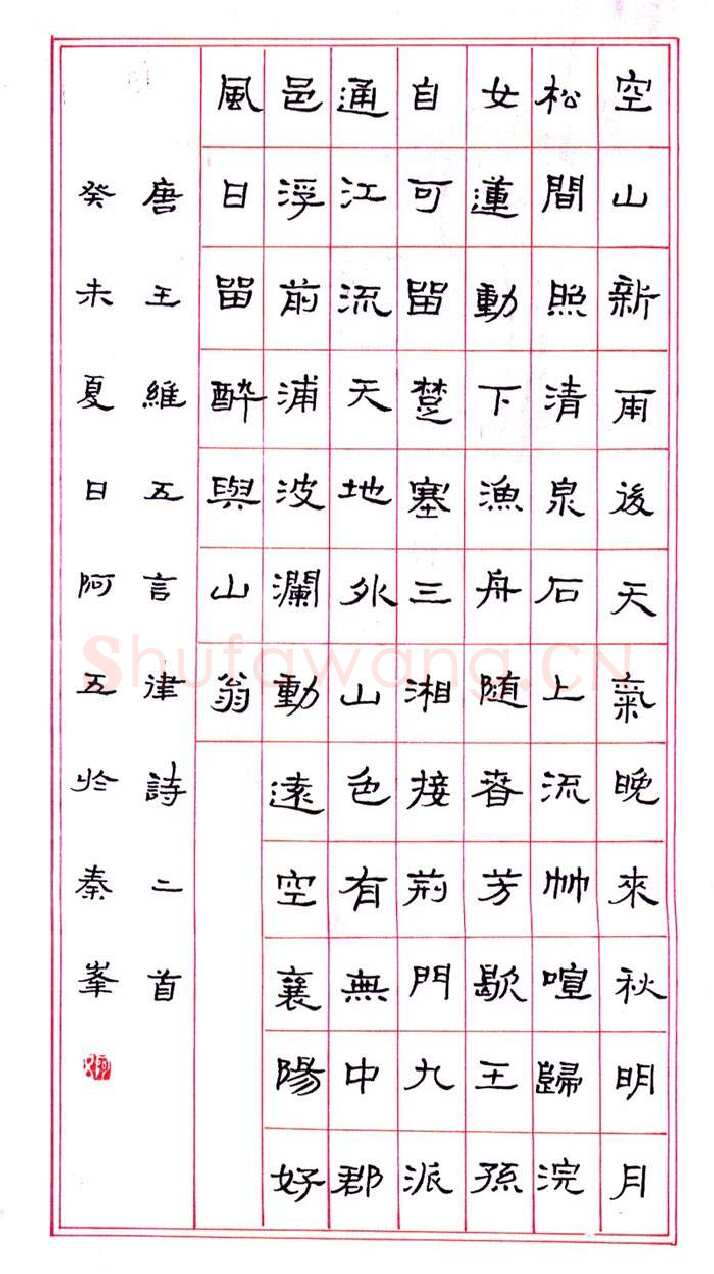 空山新雨後天氣晚來秋明月
松間照清泉石上流竹喧歸浣
女蓮動下漁舟随春芳歇王孫
自可留楚塞三湘接荊門九派
通江流天地外山色有無中郡
邑浮前浦波瀾動遠空襄陽好
風日留醉與山翁
唐王維五言律詩二首
癸未夏日阿五於秦峯
Shufawang.CN